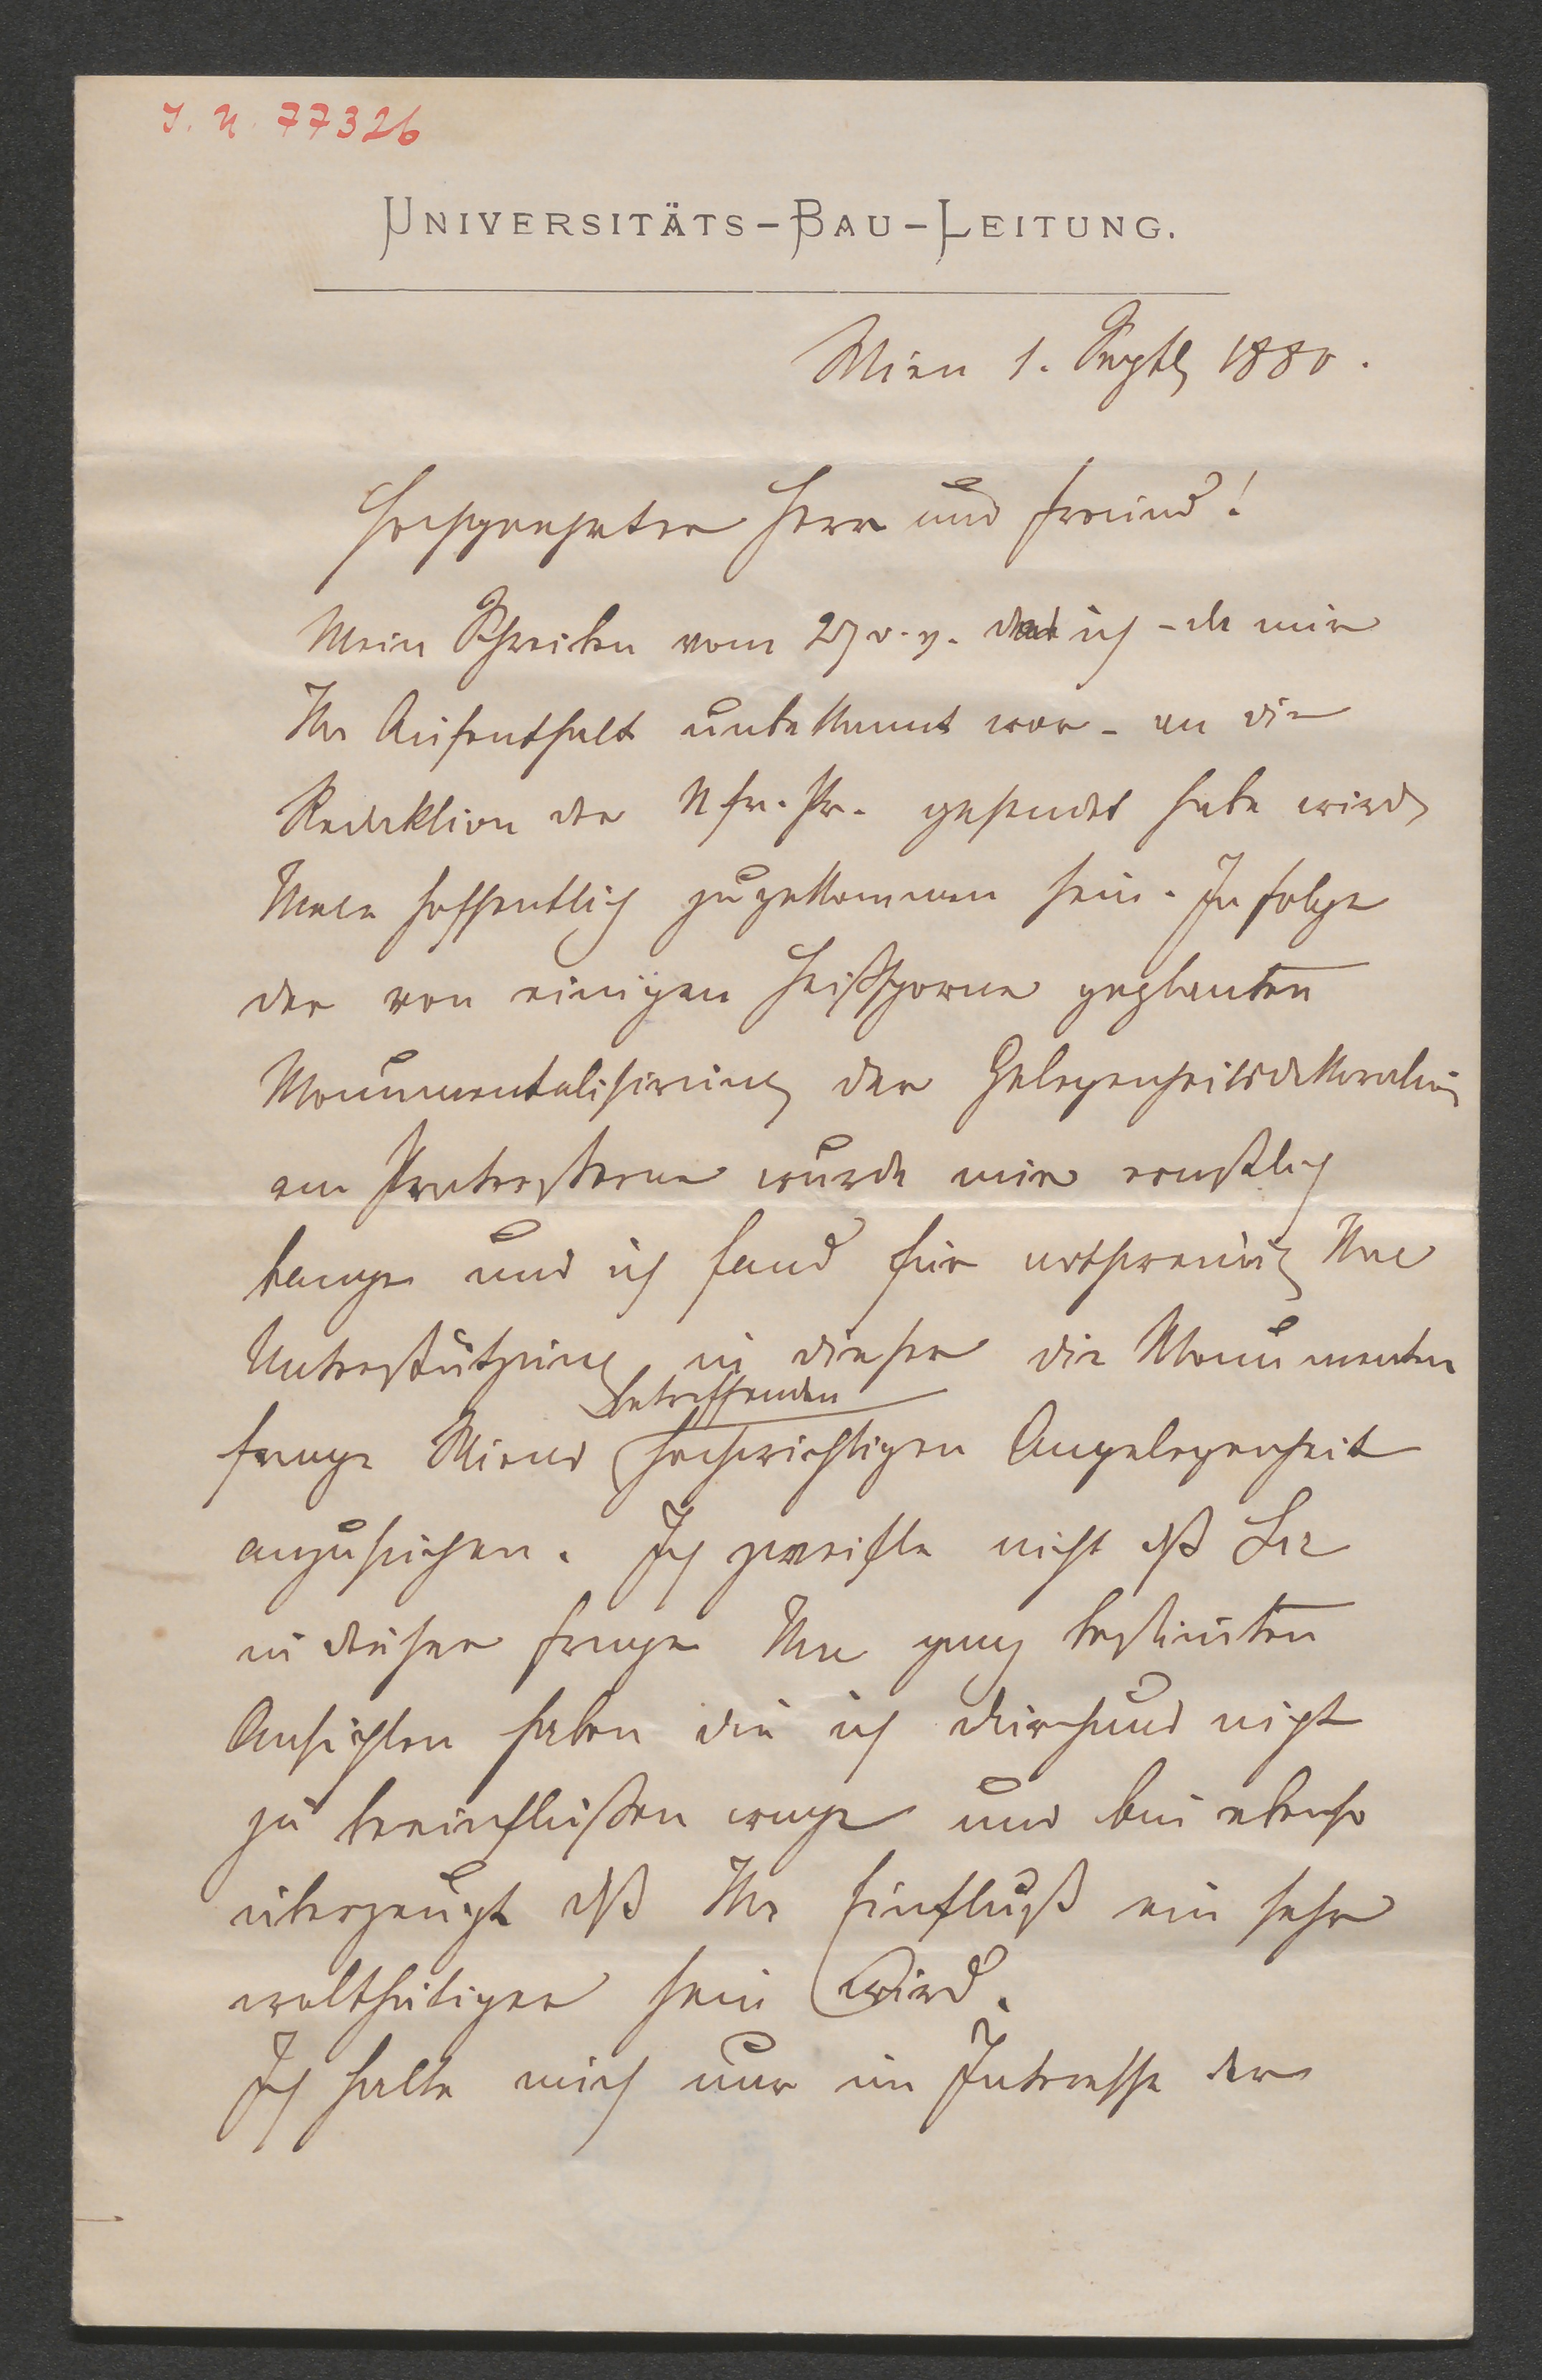 I. N. 77326
UNIVERSITÄTS-BAU-LEITUNG.
Wien 1. Septb 1880.
Hochgeehrter Herr und Freund!
Mein Schreiben vom 29 v. M. das ich – da mir
Ihr Aufenthalt unbekannt war – an die
Redaktion der N. fr. Pr. gesendet habe wird
Ihnen hoffentlich zugekommen sein. In folge
der von einigen Heißsporne geplanten
Monumentalisirung der Gelegenheitsdekoration
am Praterstern wurde mir ernstlich
bange und ich fand für nothwendig Ihre
Unterstützung in dieser die Monumenten
betreffenden
frage Wiens hochwichtigen Angelegenheit
anzusuchen. Ich zweifle nicht dß Sie
in dieser Frage Ihre ganz bestimten
Ansichten haben die ich durchaus nicht
zu beeinflußen wage und bin ebenso
überzeugt dß Ihr Einfluß ein sehr
wolthätiger sein wird.
Ich halte mich nur im Interesse der